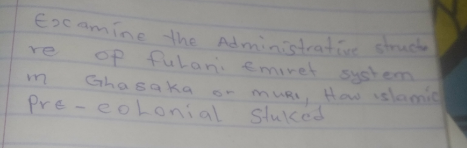 Examine the Administrative structu
re of fulani Emiret system
in Ghasaka or muri, How islamic
Pre-colonial Stuked